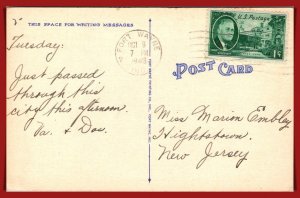 THIS SPACE FOR WRITING MESSAGES
Tuesday:
Just passed
through this
city this afternoon.
Va. & Dos.
FORT WAYNE
OCT 9
7 PM
U.S. Postage
POST CARD
Miss Marion Embley
Hightstown,
New Jersey